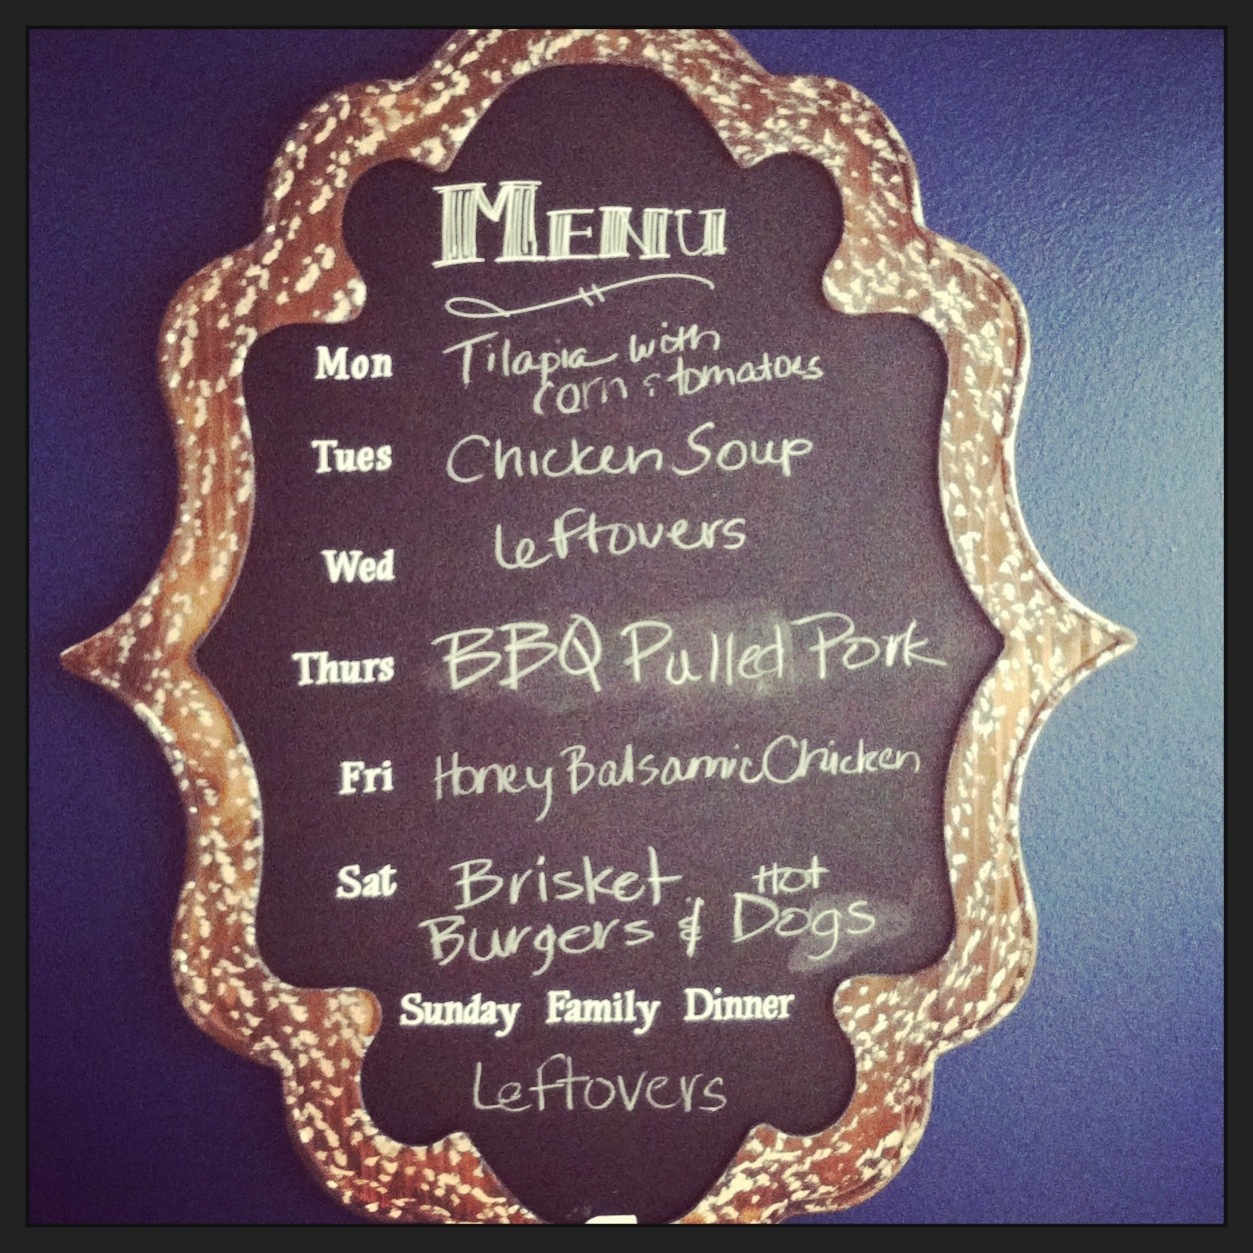 MENU
Mon Tilapia with
corn & tomatoes
Tues Chicken Soup
Wed Leftovers
Thurs BBQ Pulled Pork
Fri Honey Balsamic Chicken
Sat Brisket
Burgers & Hot Dogs
Sunday Family Dinner
Leftovers